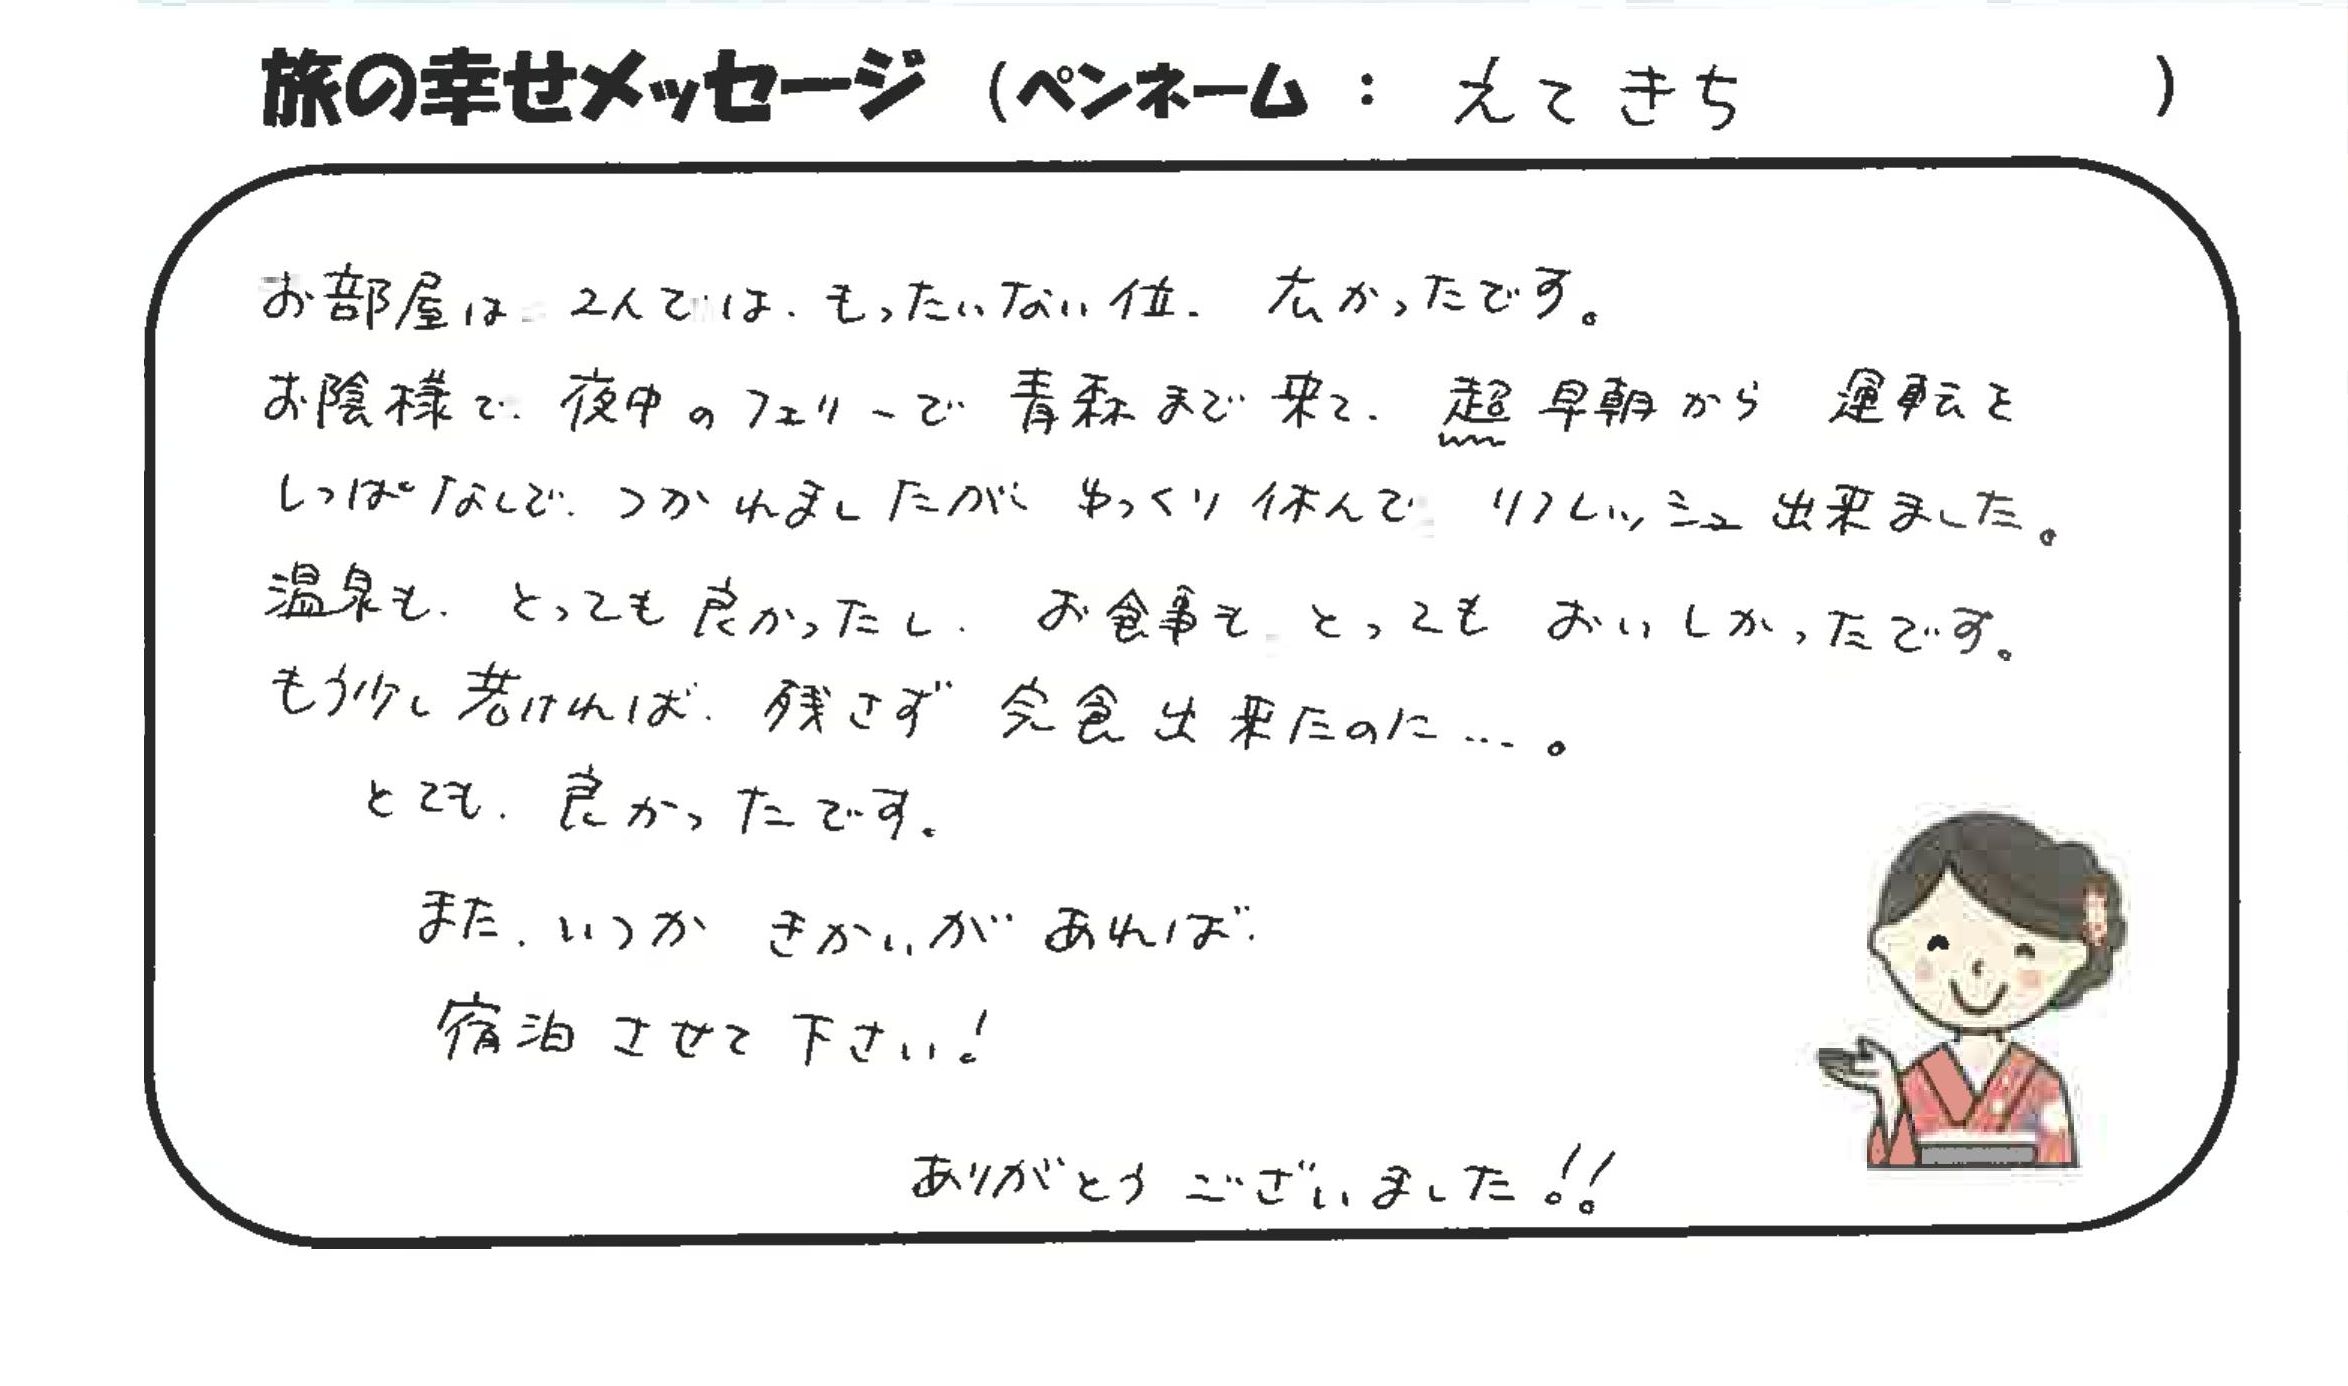 旅の幸せメッセージ (ペンネーム : えてきち )
お部屋は、2人では、もったいない位、広かったです。
お陰様で、夜中のフェリーで青森まで来て、超早朝から運転を
しっぱなしで、つかれましたが、ゆっくり休んで、リフレッシュ出来ました。
温泉も、とっても良かったし、お食事も、とってもおいしかったです。
もう少し若ければ、残さず完食出来たのに…。
とても、良かったです。
また、いつかきかいがあれば、
宿泊させて下さい!
ありがとうございました!!